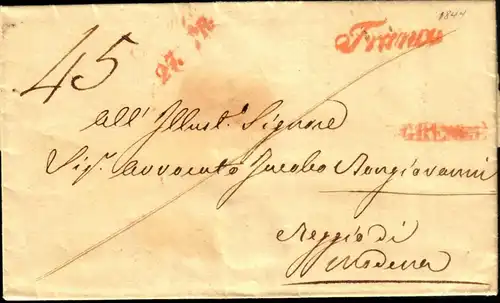 1844
Franco
45
all' Illust.º Signore
Sig.º Avvocato Jacobo Bongiovanni
Reggio di
Modena